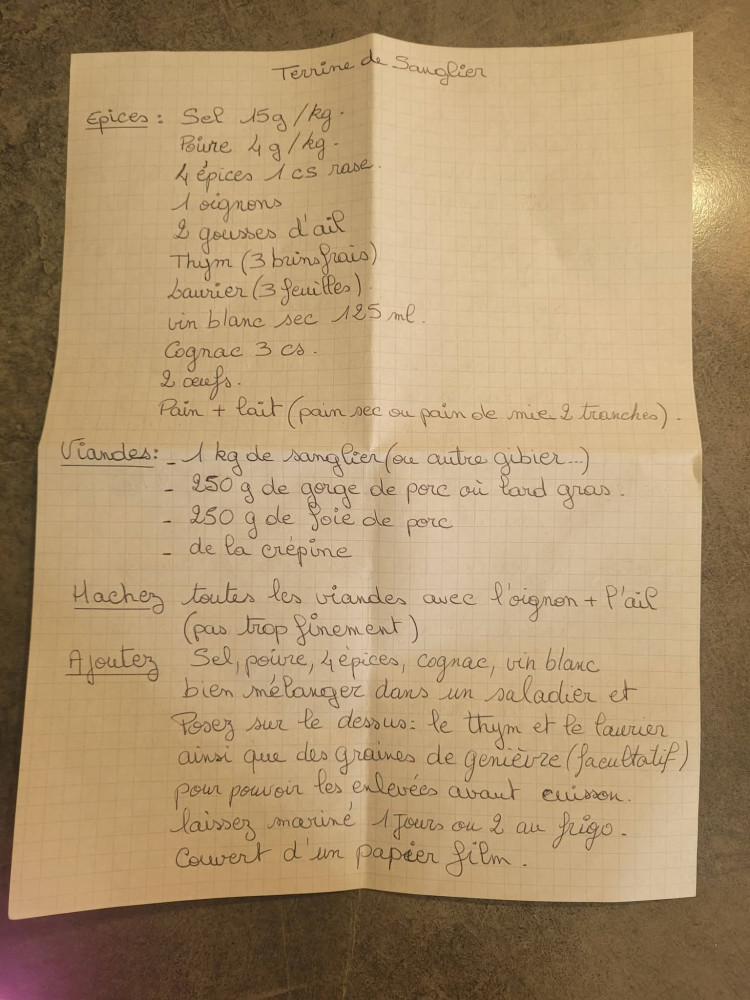 Terrine de Sanglier
Epices : Sel 15g/kg.
Poivre 4g/kg.
4 épices 1 cs rase.
1 oignons
2 gousses d'ail
Thym (3 brins frais)
Laurier (3 feuilles).
vin blanc sec 125 ml.
Cognac 3 cs.
2 œufs.
Pain + lait (pain sec ou pain de mie 2 tranches).
Viandes: - 1 kg de sanglier (ou autre gibier...)
- 250 g de gorge de porc où lard gras.
- 250 g de foie de porc
- de la crépine
Hachez toutes les viandes avec l'oignon + l'ail
(pas trop finement)
Ajoutez Sel, poivre, 4 épices, cognac, vin blanc
bien mélanger dans un saladier et
Posez sur le dessus: le thym et le laurier
ainsi que des graines de genièvre (facultatif)
pour pouvoir les enlevées avant cuisson.
laissez mariné 1 Jours ou 2 au frigo.
Couvert d'un papier film.